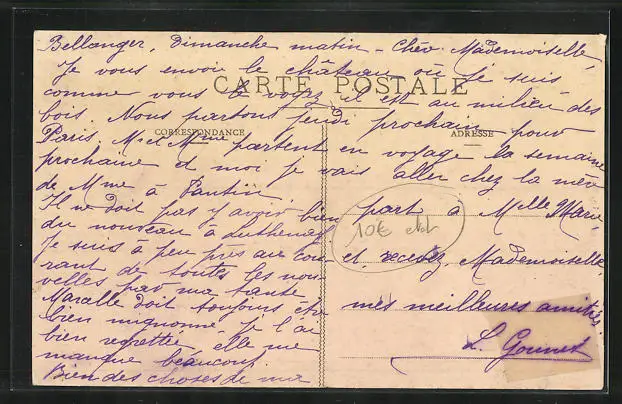 Bellanger, Dimanche matin - Chère Mademoiselle,
Je vous envoi le château où je suis
CARTE POSTALE
comme vous le voyez il est au milieu des
bois. Nous partons jeudi prochain pour
CORRESPONDANCE
ADRESSE
Paris. M et Mme partent en voyage la semaine
prochaine et moi je vais aller chez la mère
de Mme à Pantin
Il ne doit pas y avoir bien
du nouveau à Luthenay
Je suis à peu près au cou-
rant de toutes les nou-
velles par ma tante
Marcelle doit toujours être
bien mignonne. Je l'ai
bien regrettée elle me
manque beaucoup.
Bien des choses de ma
part à Mlle Marie
10€
et recevez, Mademoiselle,
mes meilleures amitiés
L. Gounet